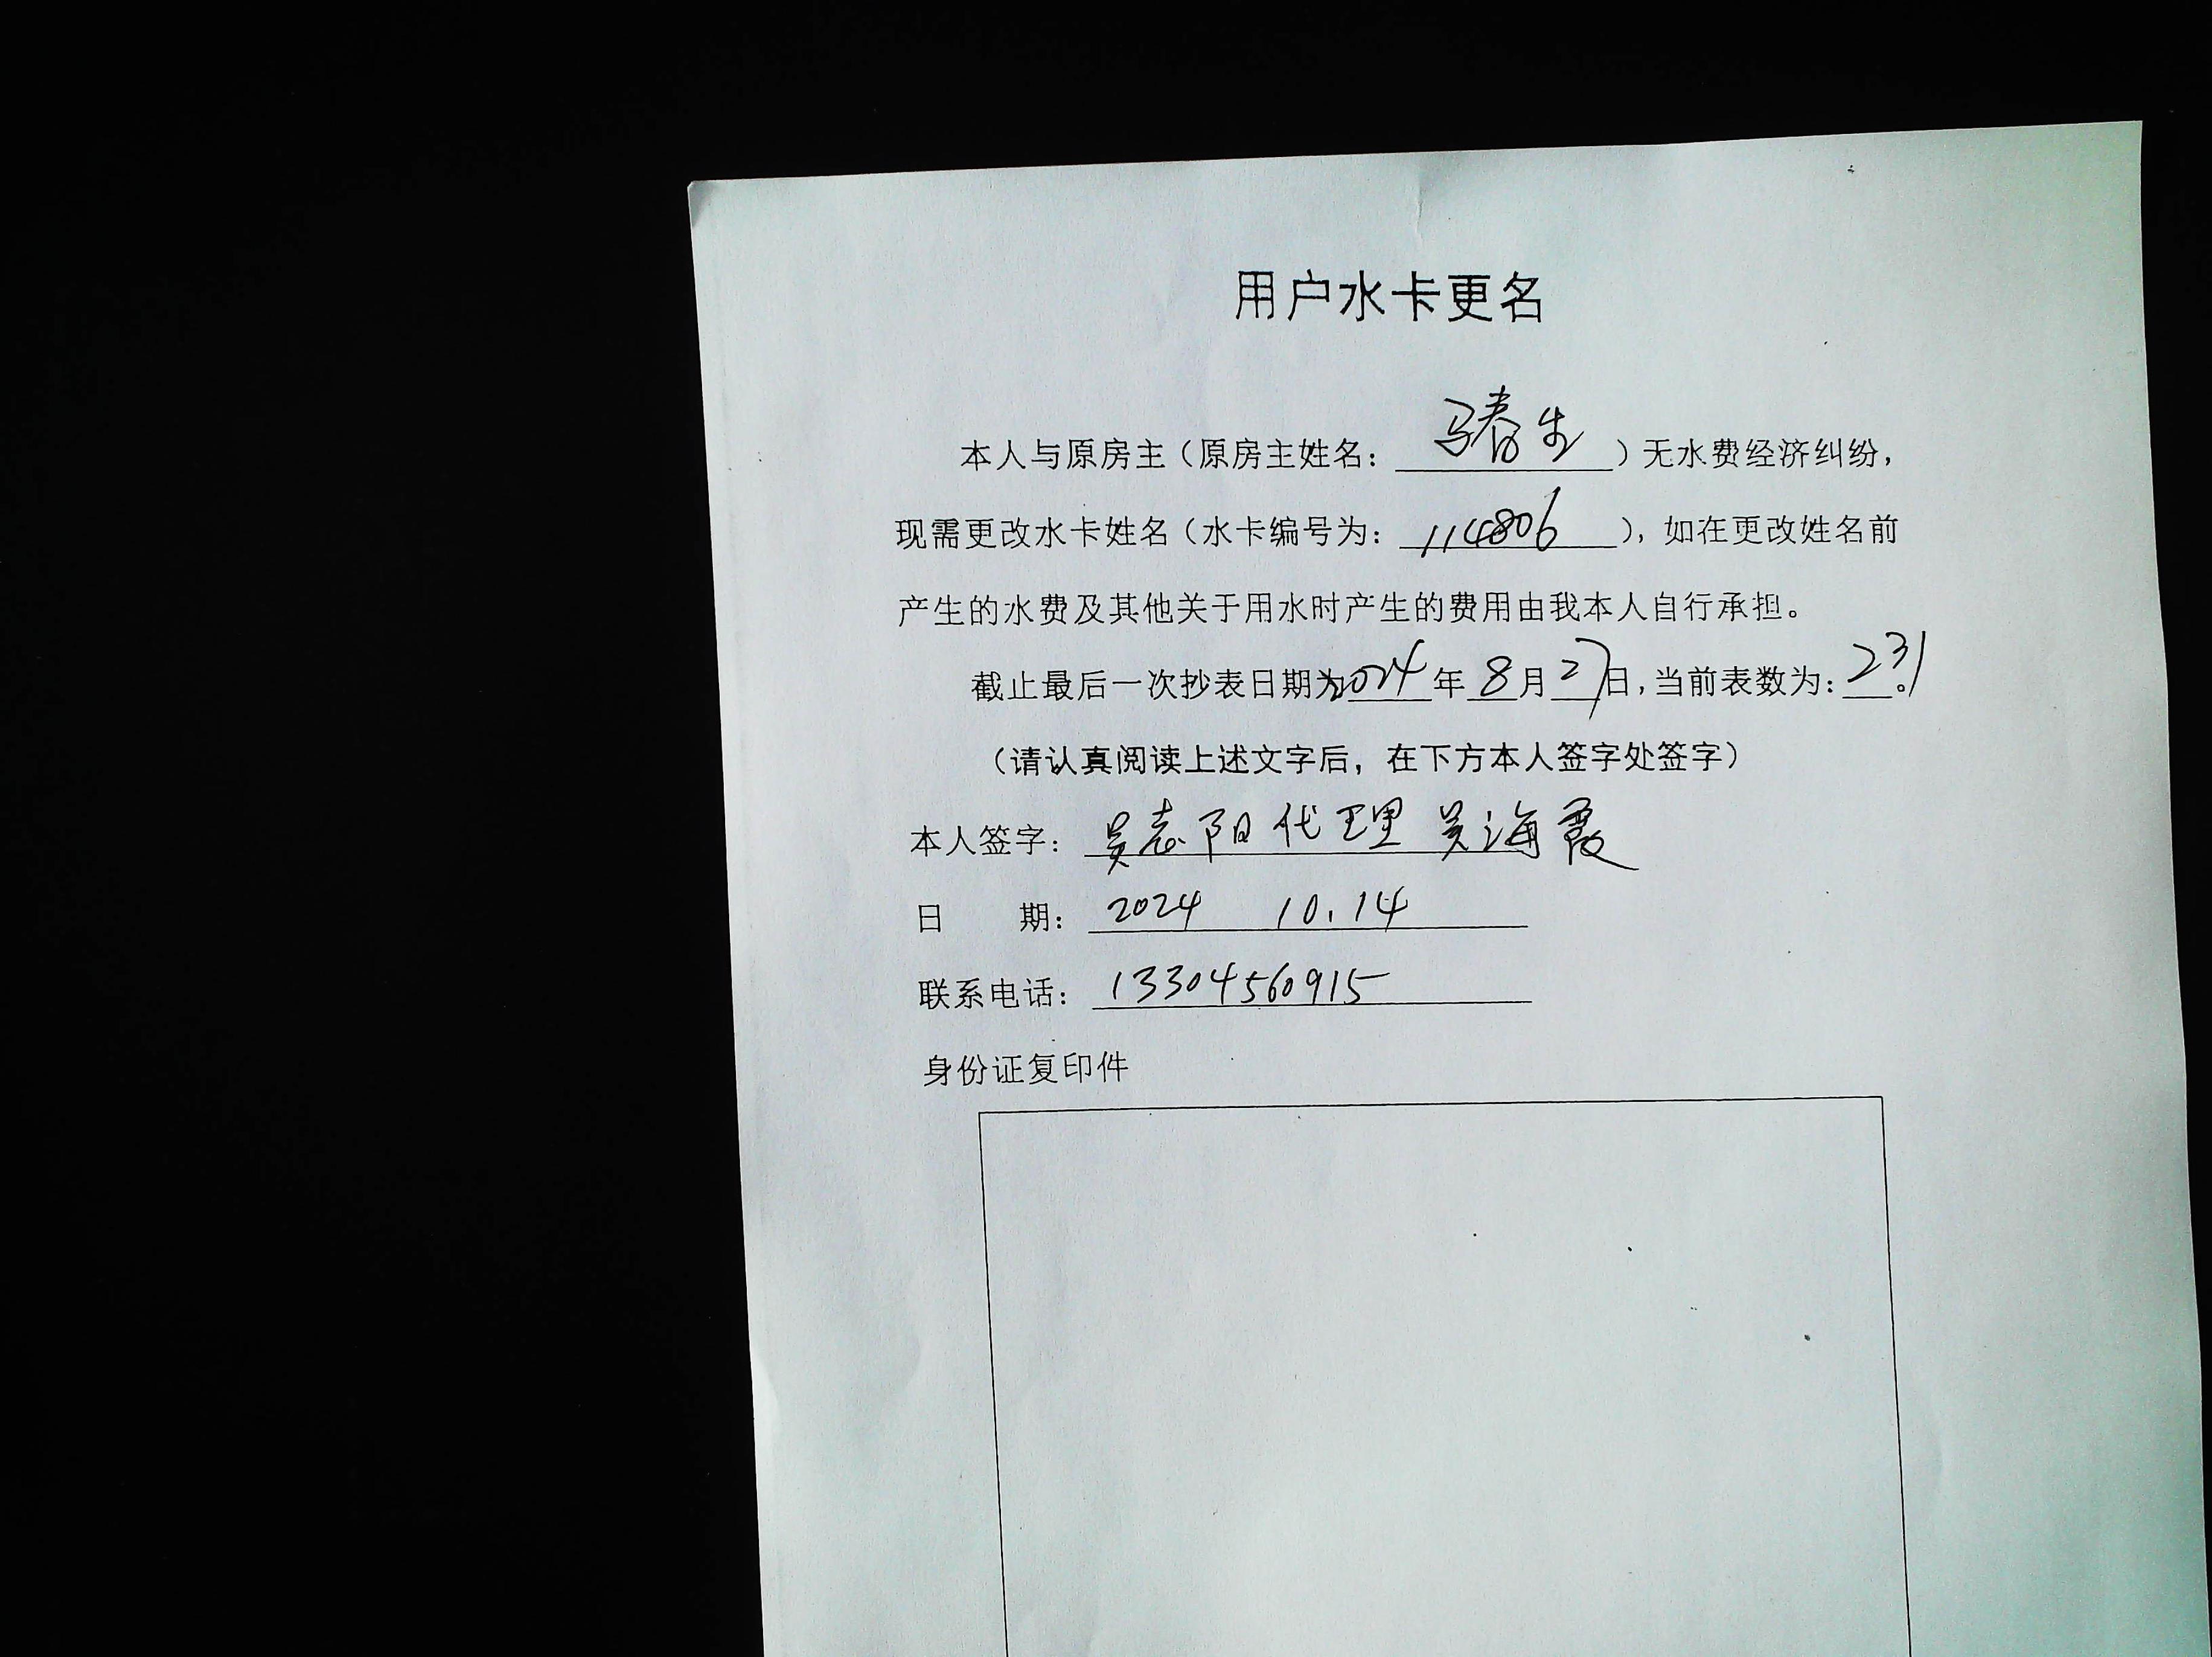 用户水卡更名
本人与原房主（原房主姓名：马春生）无水费经济纠纷，
现需更改水卡姓名（水卡编号为：114806），如在更改姓名前
产生的水费及其他关于用水时产生的费用由我本人自行承担。
截止最后一次抄表日期为2024年8月27日，当前表数为：231。
（请认真阅读上述文字后，在下方本人签字处签字）
本人签字：吴志阳代理吴海霞
日 期：2024 10.14
联系电话：13304560915
身份证复印件